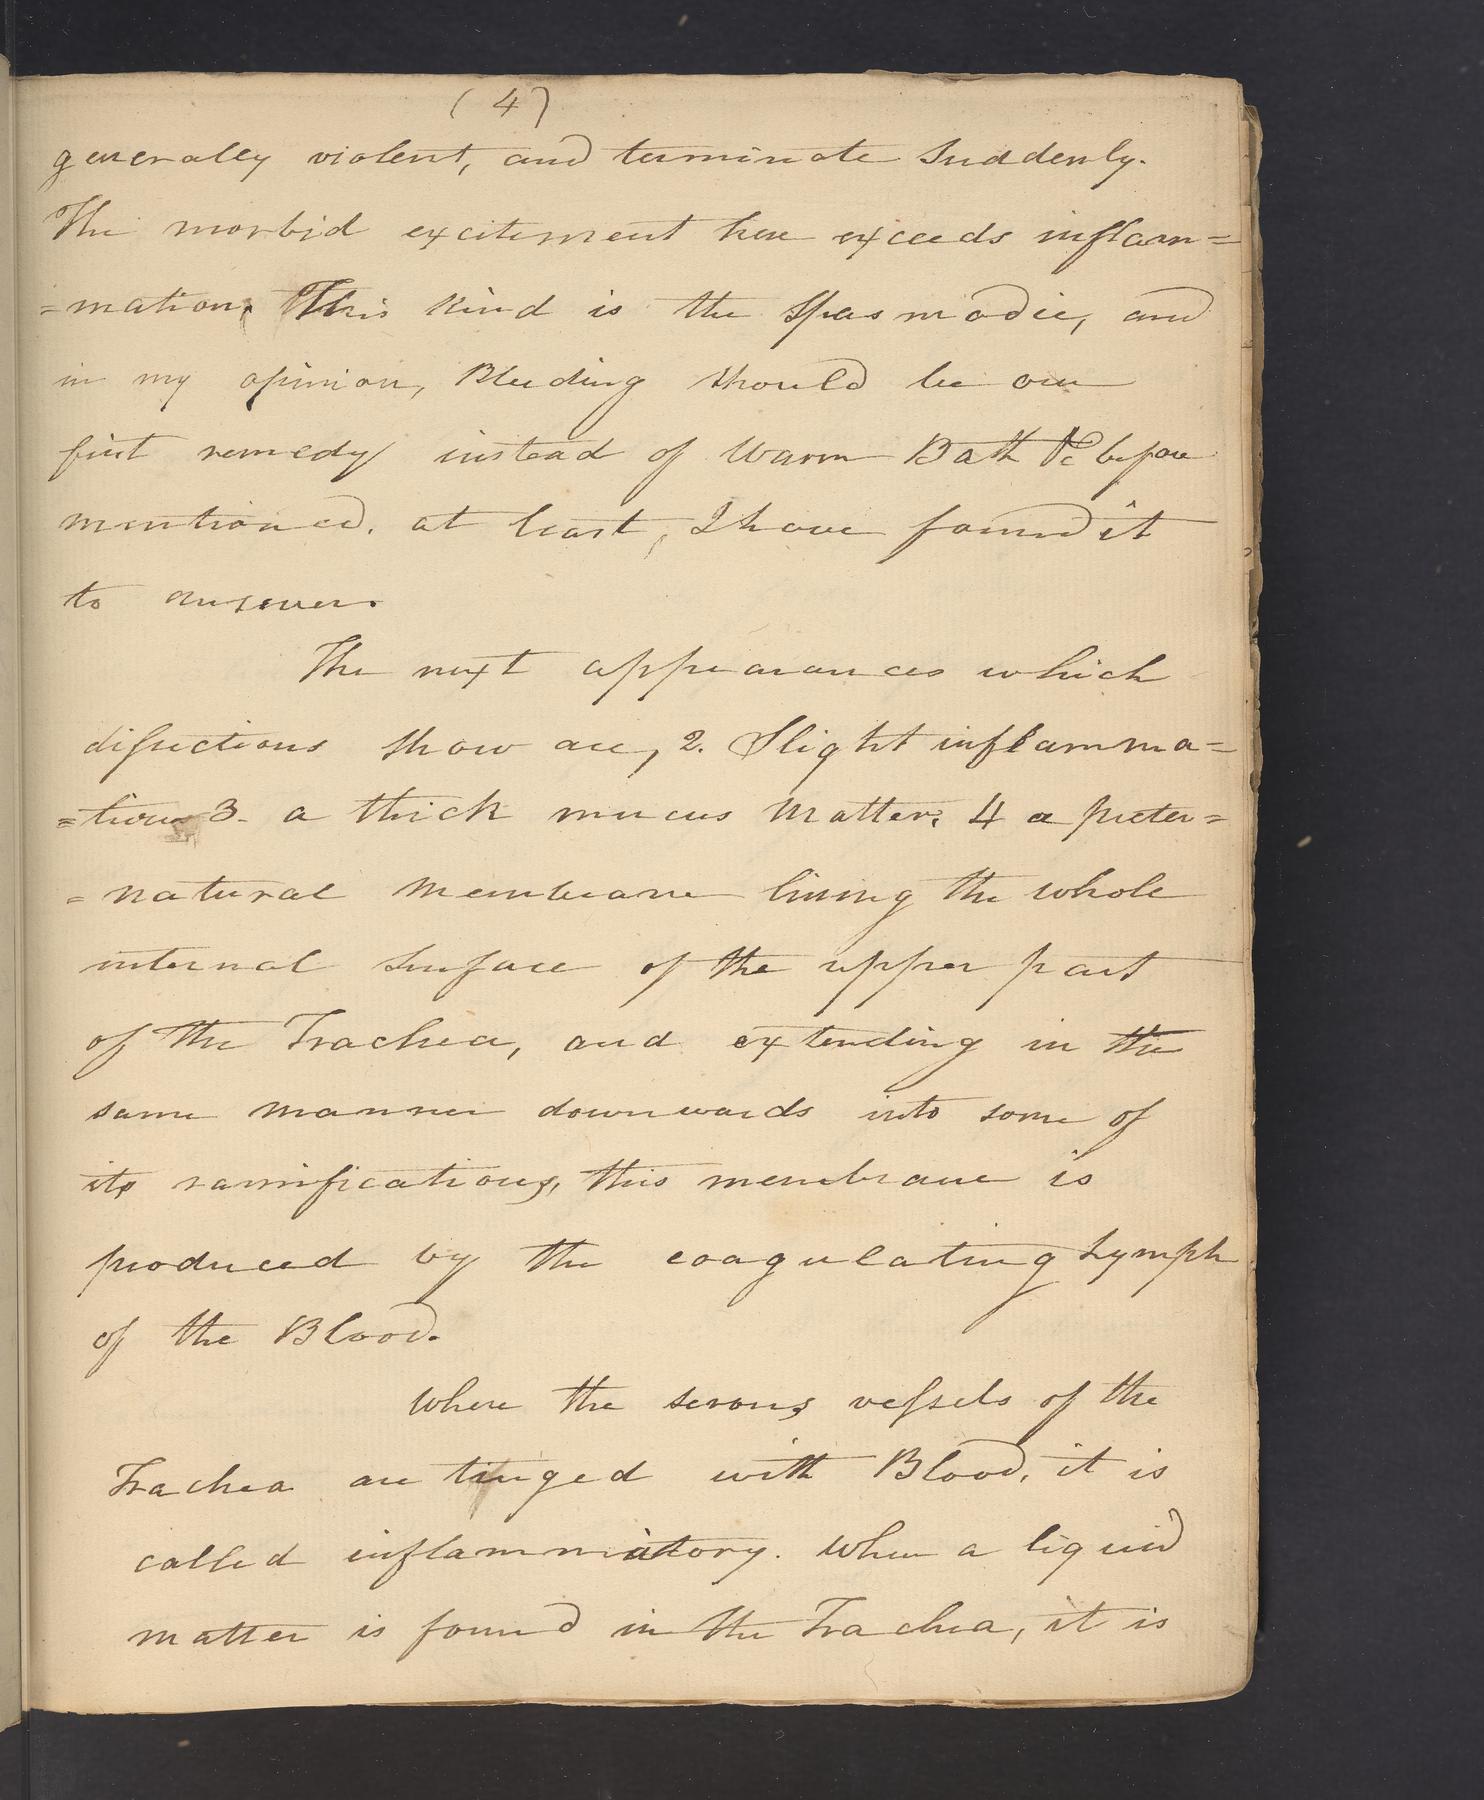 ( 4 )
generaley violent, and terminate suddenly.
The morbid excitement here exceeds inflam=
=mation. This kind is the Spasmodic, and
in my opinion, Bleeding should be our
first remedy instead of Warm Bath &c before
mentioned. at least, I have found it
to answer.
The next appearances which
dissections show are, 2. Slight inflamma=
=tion 3. a thick mucus Matter. 4 a preter=
=natural Membrane lining the whole
internal surface of the upper part
of the Trachea, and extending in the
same manner downwards into some of
its ramifications, this membrane is
produced by the coagulating Lymph
of the Blood.
Where the serous vessels of the
Trachea are tinged with Blood, it is
called inflammatory. When a liquid
matter is found in the Trachea, it is